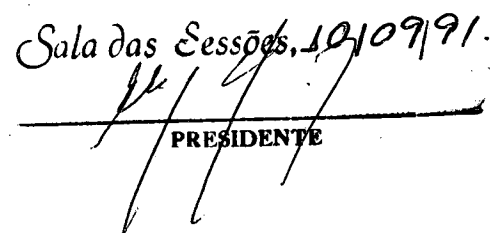 Sala das Sessões, 10/09/91.
PRESIDENTE